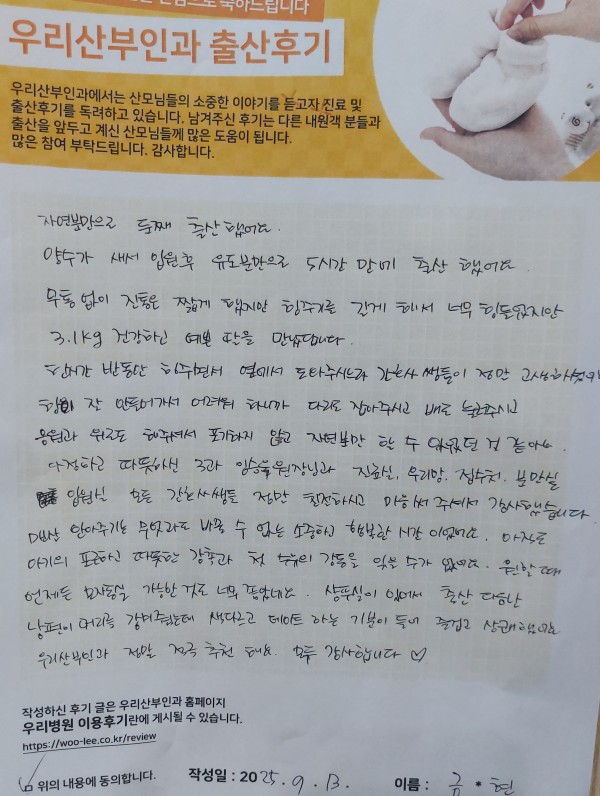 진심으로 축하드립니다
우리산부인과 출산후기
우리산부인과에서는 산모님들의 소중한 이야기를 듣고자 진료 및
출산후기를 독려하고 있습니다. 남겨주신 후기는 다른 내원객 분들과
출산을 앞두고 계신 산모님들께 많은 도움이 됩니다.
많은 참여 부탁드립니다. 감사합니다.
자연분만으로 둘째 출산 했어요.
양수가 새서 입원후 유도분만으로 5시간 만에 출산 했어요
무통 없이 진통은 짧게 했지만 힘주기를 길게 해서 너무 힘들었지만
3.1kg 건강하고 예쁜 딸을 만났답니다.
한시간 반동안 힘주면서 옆에서 도와주시느라 간호사 쌤들이 정말 고생하셨어
힘이 잘 안들어가서 어려워 하니까 다리도 잡아주시고 배도 눌러주시고
응원과 위로도 해주셔서 포기하지 않고 자연분만 할 수 있었던 것 같아요
다정하고 따뜻하신 3과 원장님과 진료실, 우리맘, 접수처, 분만실
입원실 모든 간호사쌤들 정말 친절하시고 마음써 주셔서 감사했습니다.
매번 안아주기는 무엇과도 바꿀 수 없는 소중하고 행복한 시간 이었어요. 아직도
아기의 포근하고 따뜻한 감촉과 첫 수유의 감동을 잊을 수가 없어요. 원할 때
언제든 모자동실 가능한 것도 너무 좋았네요. 샴푸실이 있어서 출산 다음날
남편이 머리를 감겨줬는데 색다르고 데이트 하는 기분이 들어 즐겁고 상쾌했네요
우리산부인과 정말 적극 추천 해요. 모두 감사합니다 ♡
작성하신 후기 글은 우리산부인과 홈페이지
우리병원 이용후기란에 게시될 수 있습니다.
https://woo-lee.co.kr/review
위의 내용에 동의합니다. 작성일 : 2025. 9. 13. 이름 : 금 * 현